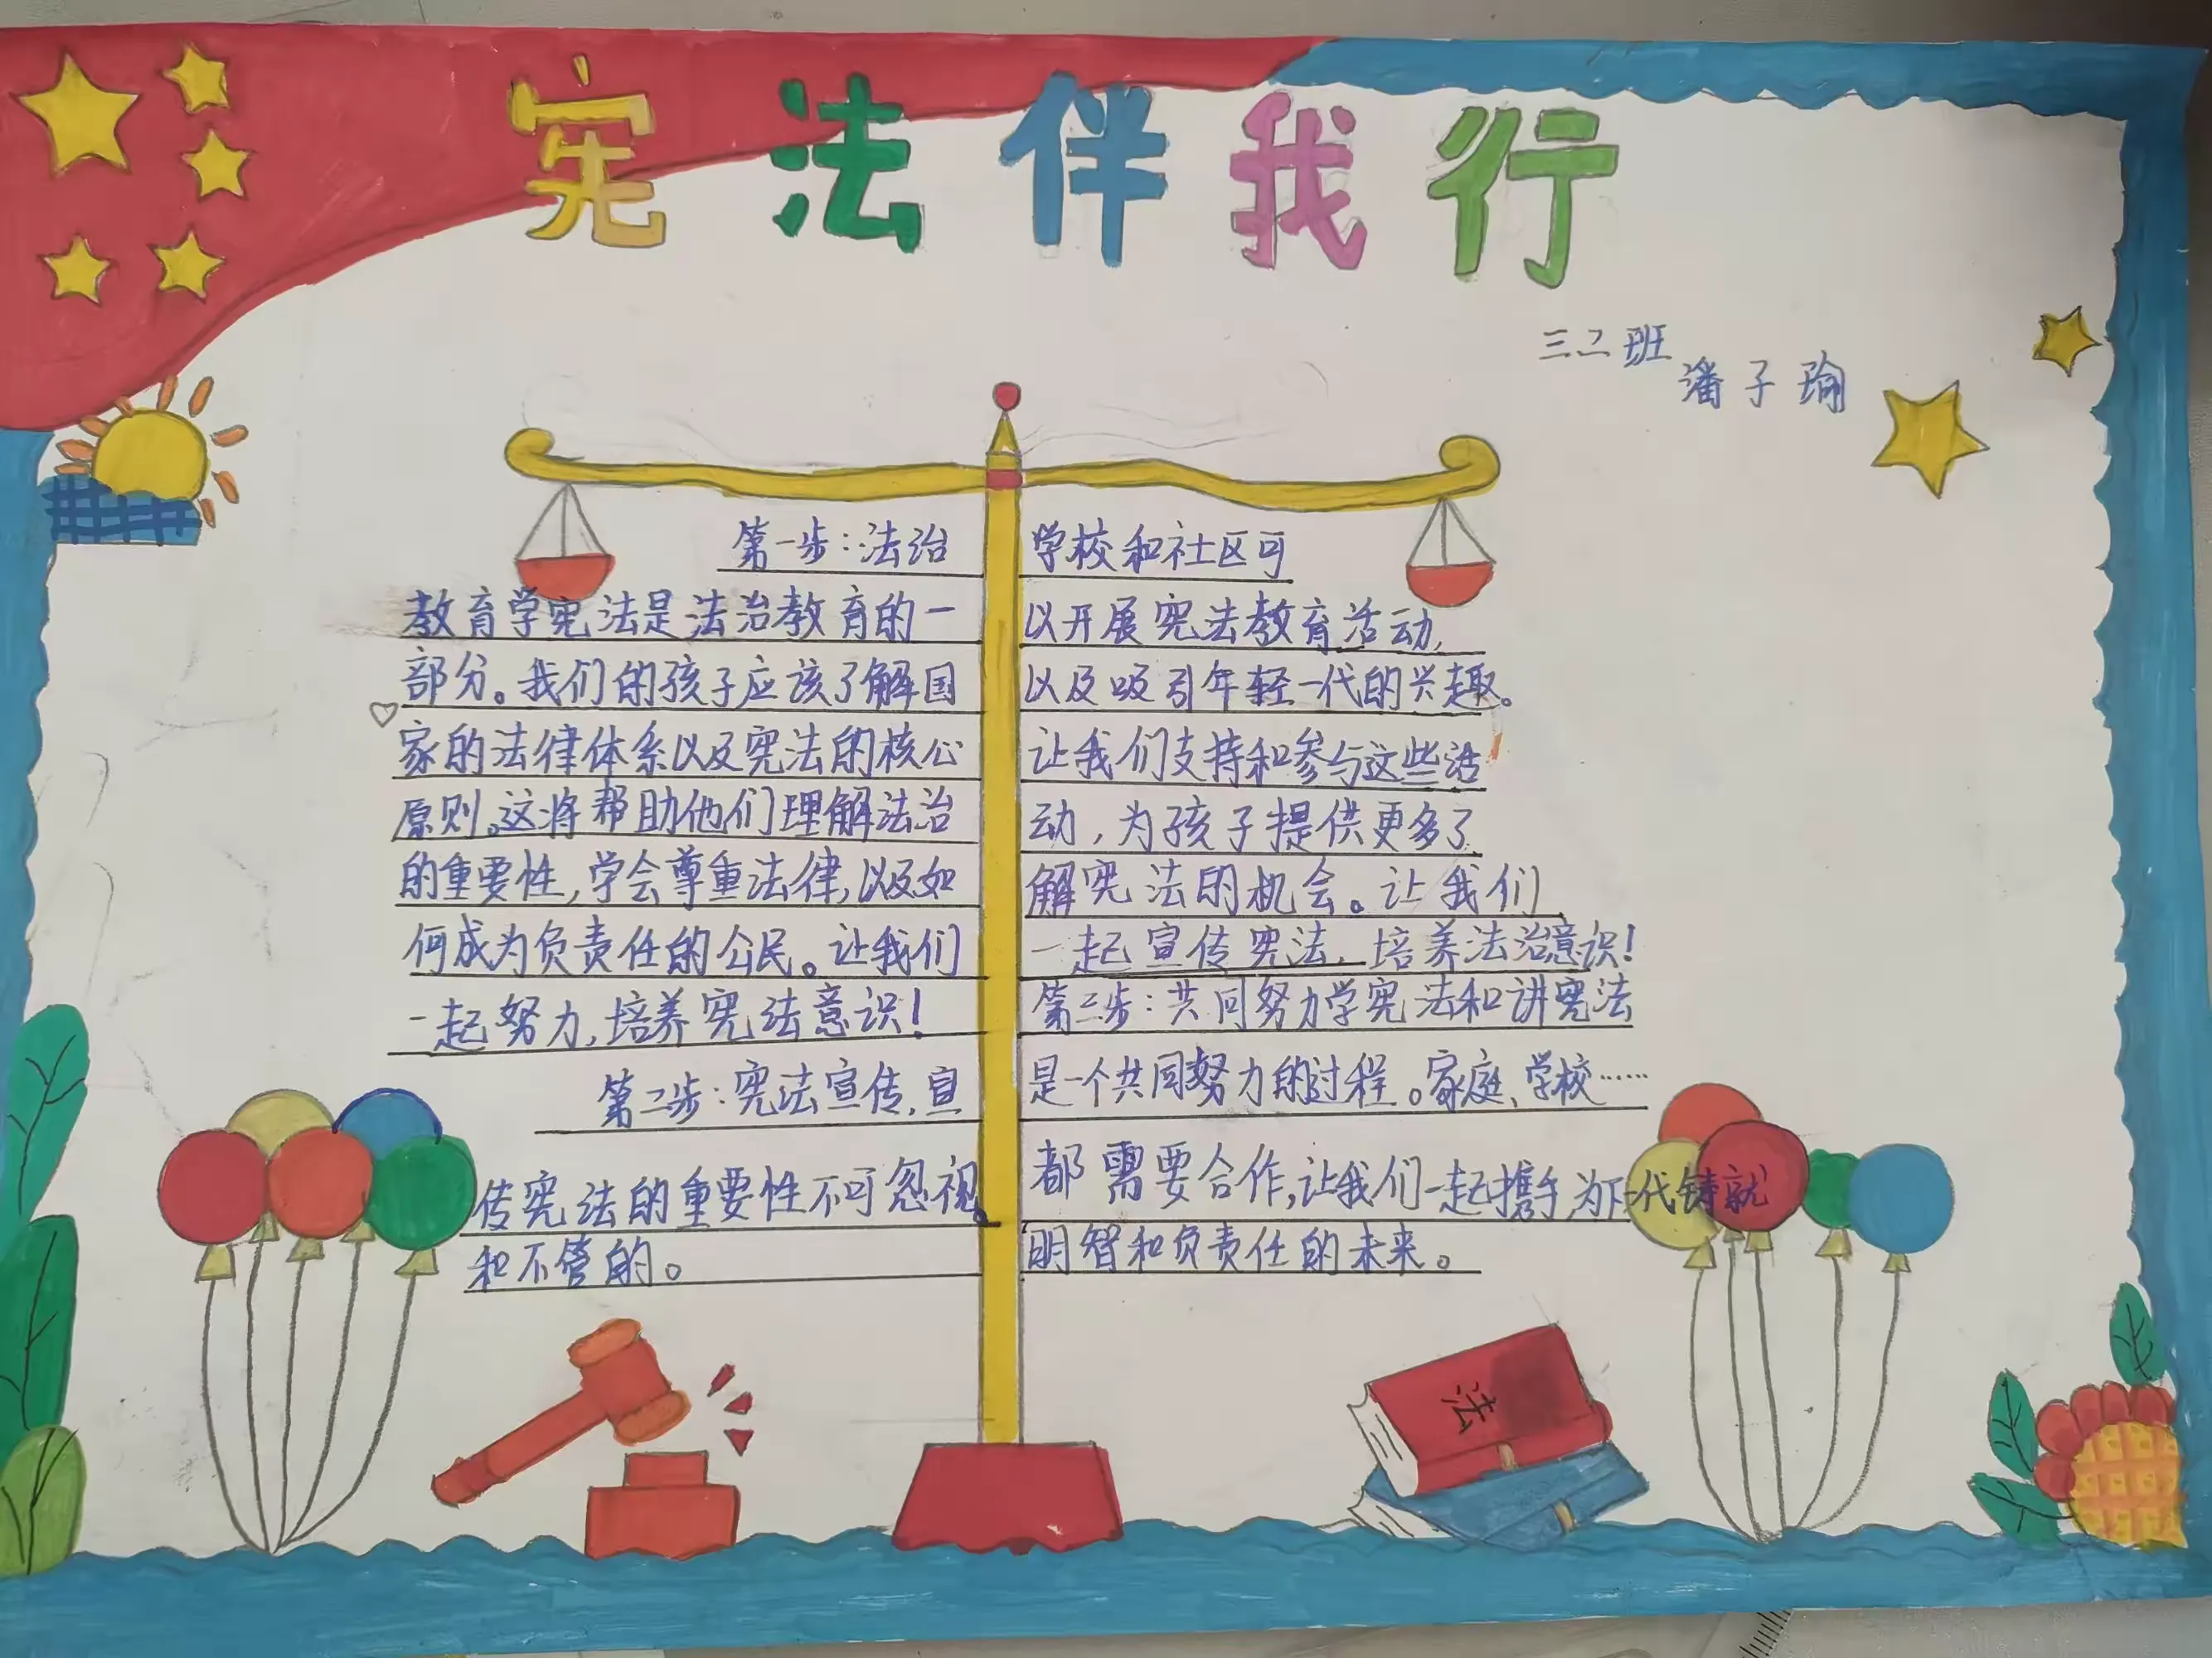 宪法伴我行
三二班
潘子瑜
第一步：法治
教育学宪法是法治教育的一
部分。我们的孩子应该了解国
家的法律体系以及宪法的核心
原则。这将帮助他们理解法治
的重要性，学会尊重法律，以及如
何成为负责任的公民。让我们
一起努力，培养宪法意识！
第二步：宪法宣传，宣
传宪法的重要性不可忽视。
和不管的。
学校和社区可
以开展宪法教育活动，
以及吸引年轻一代的兴趣。
让我们支持和参与这些活
动，为孩子提供更多了
解宪法的机会。让我们
一起宣传宪法，培养法治意识！
第三步：共同努力学宪法和讲宪法
是一个共同努力的过程。家庭、学校……
都需要合作，让我们一起携手，为下一代铸就
明智和负责任的未来。
法